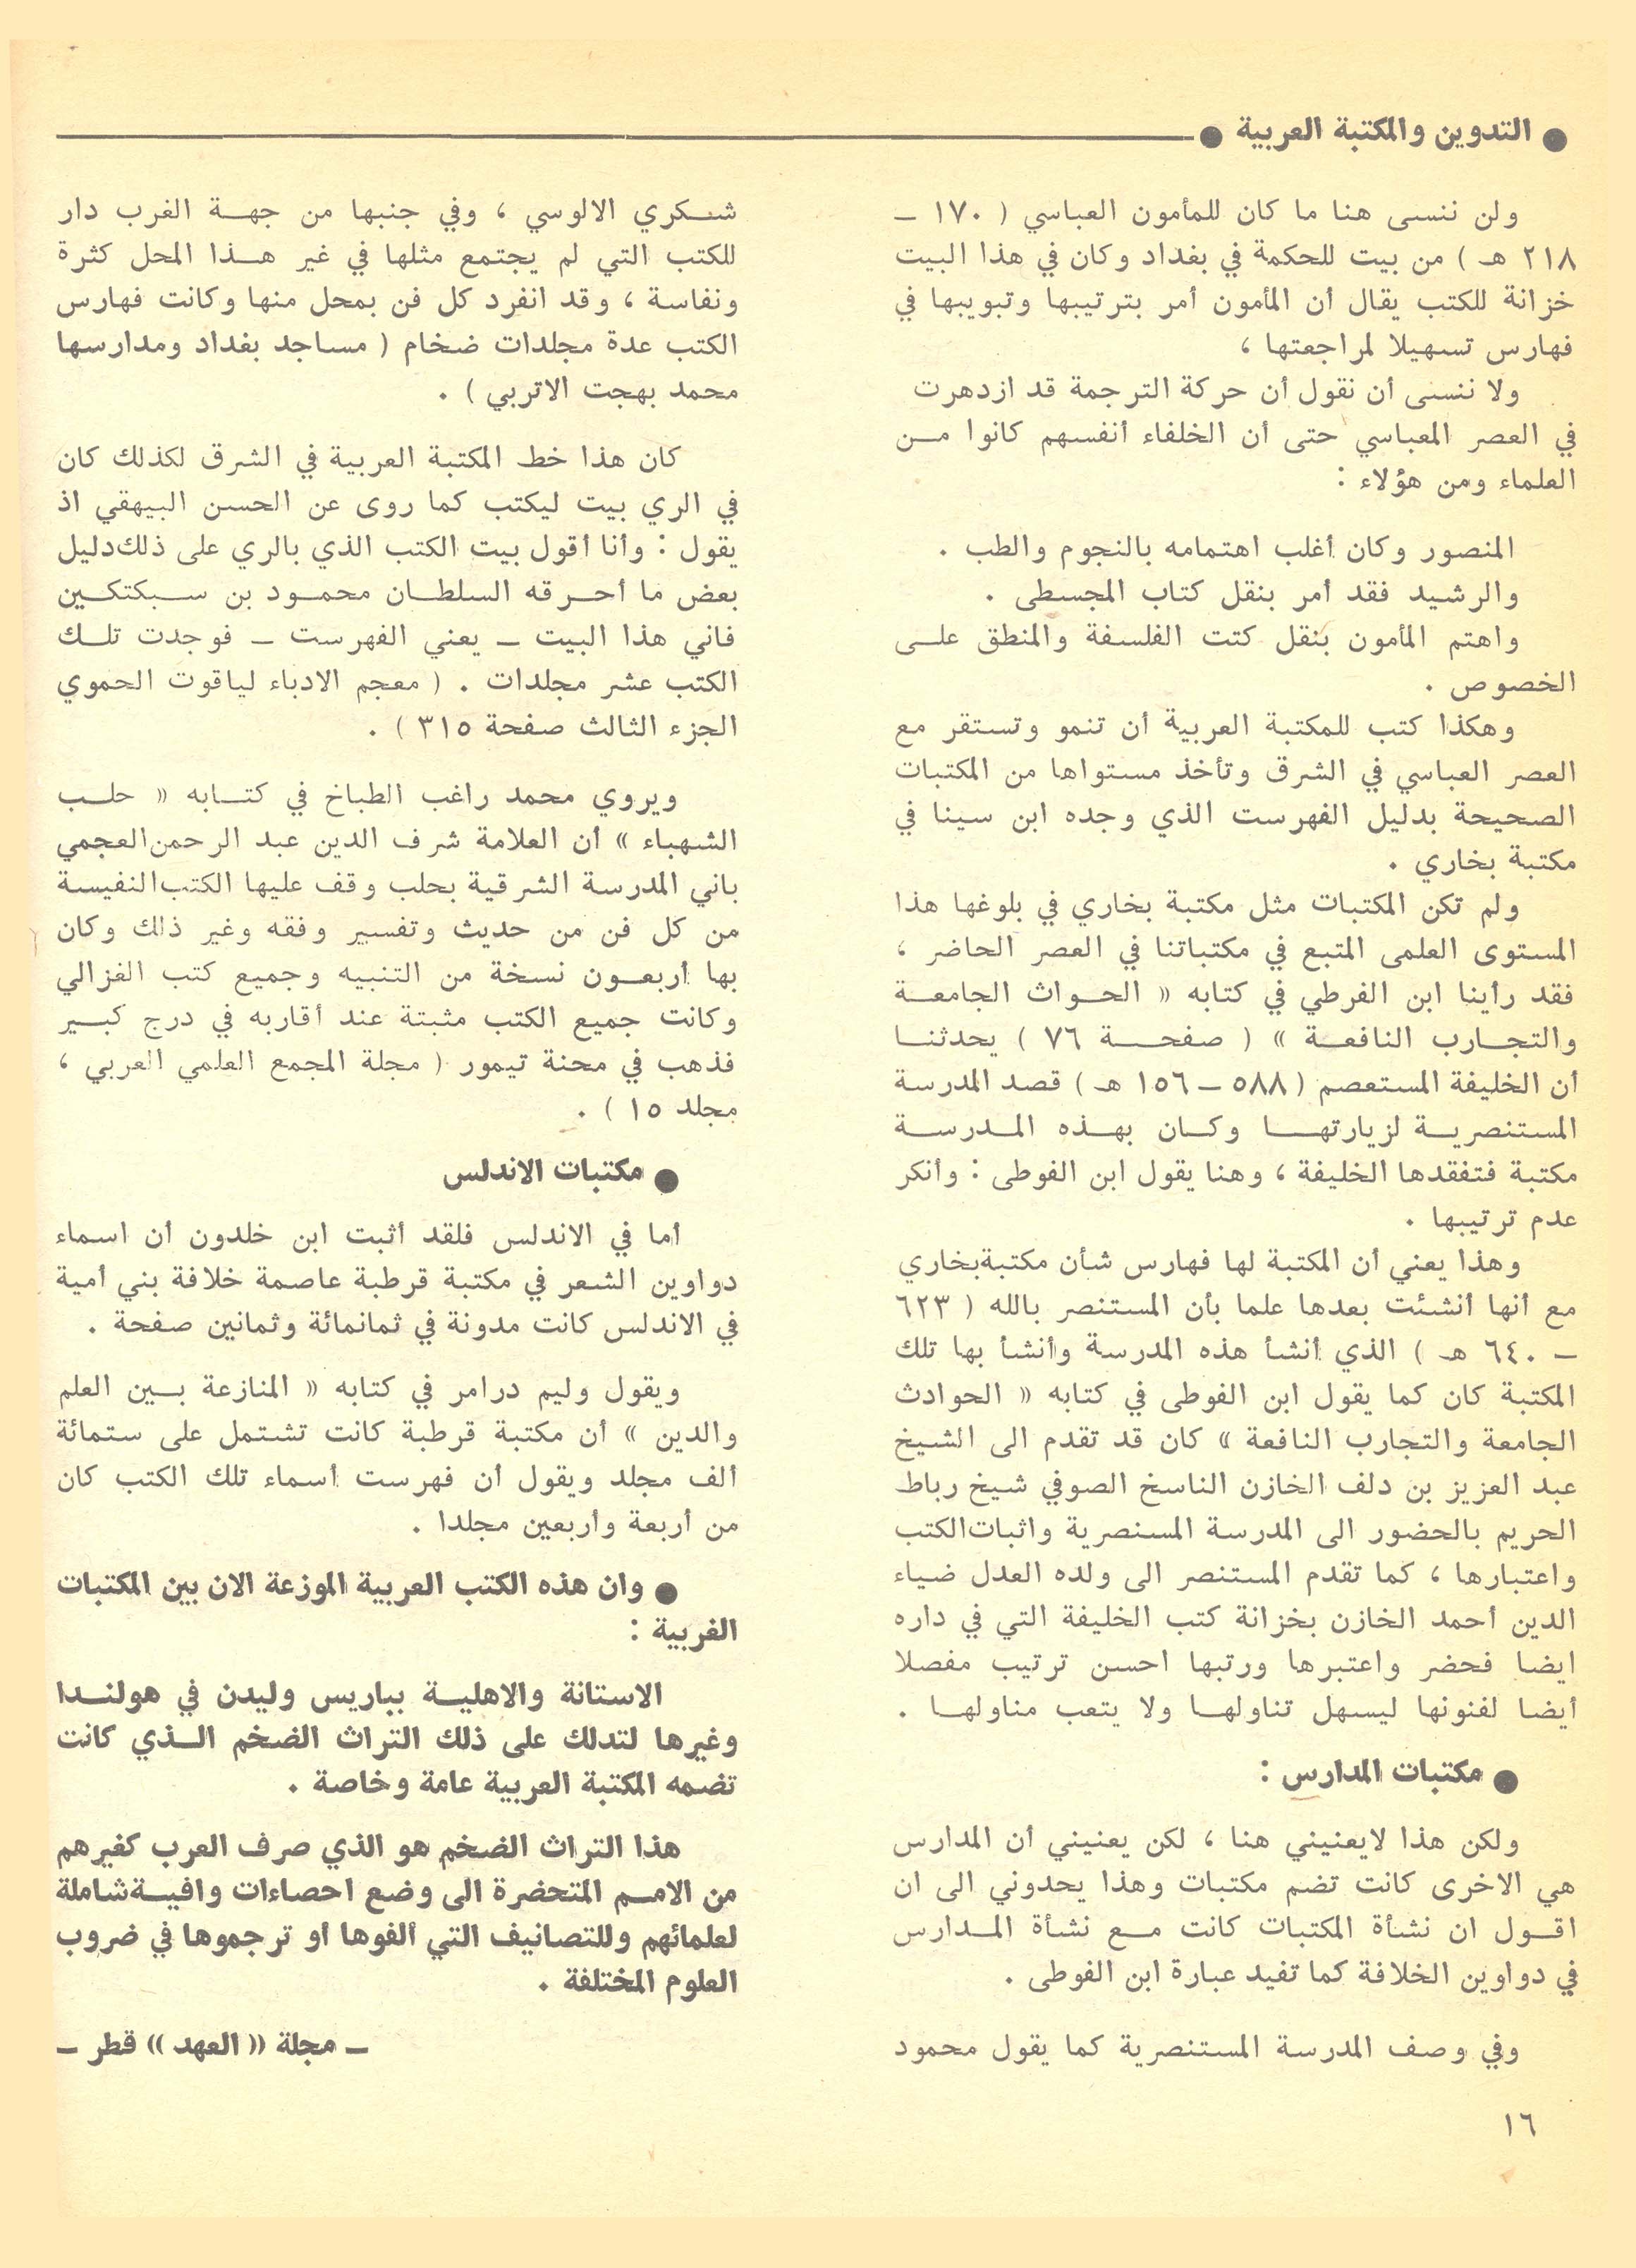 ● التدوين والمكتبة العربية ●
ولن ننسى هنا ما كان للمأمون العباسي ( ١٧٠ —
٢١٨ هـ ) من بيت للحكمة في بغداد وكان في هذا البيت
خزانة للكتب يقال أن المأمون أمر بترتيبها وتبويبها في
فهارس تسهيلا لمراجعتها ،
ولا ننسى أن نقول أن حركة الترجمة قد ازدهرت
في العصر المعباسي حتى أن الخلفاء أنفسهم كانوا من
العلماء ومن هؤلاء :
المنصور وكان أغلب اهتمامه بالنجوم والطب .
والرشيد فقد أمر بنقل كتاب المجسطى .
واهتم المأمون بنقل كتت الفلسفة والمنطق على
الخصوص .
وهكذا كتب للمكتبة العربية أن تنمو وتستقر مع
العصر العباسي في الشرق وتأخذ مستواها من المكتبات
الصحيحة بدليل الفهرست الذي وجده ابن سينا في
مكتبة بخاري .
ولم تكن المكتبات مثل مكتبة بخاري في بلوغها هذا
المستوى العلمى المتبع في مكتباتنا في العصر الحاضر ،
فقد رأينا ابن الفرطي في كتابه « الحواث الجامعة
والتجارب النافعة » ( صفحة ٧٦ ) يحدثنا
أن الخليفة المستعصم ( ٥٨٨ — ١٥٦ هـ ) قصد المدرسة
المستنصرية لزيارتها وكان بهذه المدرسة
مكتبة فتفقدها الخليفة ، وهنا يقول ابن الفوطى : وأنكر
عدم ترتيبها .
وهذا يعني أن المكتبة لها فهارس شأن مكتبة بخاري
مع أنها أنشئت بعدها علما بأن المستنصر بالله ( ٦٢٣
— ٦٤٠ هـ ) الذي أنشأ هذه المدرسة وأنشأ بها تلك
المكتبة كان كما يقول ابن الفوطى في كتابه « الحوادث
الجامعة والتجارب النافعة » كان قد تقدم الى الشيخ
عبد العزيز بن دلف الخازن الناسخ الصوفي شيخ رباط
الحريم بالحضور الى المدرسة المسنصرية واثبات الكتب
واعتبارها ، كما تقدم المستنصر الى ولده العدل ضياء
الدين أحمد الخازن بخزانة كتب الخليفة التي في داره
ايضا فحضر واعتبرها ورتبها احسن ترتيب مفصلا
أيضا لفنونها ليسهل تناولها ولا يتعب مناولها .
● مكتبات المدارس :
ولكن هذا لايعنيني هنا ، لكن يعنيني أن المدارس
هي الاخرى كانت تضم مكتبات وهذا يحدوني الى ان
اقول ان نشأة المكتبات كانت مع نشأة المدارس
في دواوين الخلافة كما تفيد عبارة ابن الفوطى .
وفي وصف المدرسة المستنصرية كما يقول محمود
شكري الالوسي ، وفي جنبها من جهة الغرب دار
للكتب التي لم يجتمع مثلها في غير هذا المحل كثرة
ونفاسة ، وقد انفرد كل فن بمحل منها وكانت فهارس
الكتب عدة مجلدات ضخام ( مساجد بغداد ومدارسها
محمد بهجت الاتربي ) .
كان هذا خط المكتبة العربية في الشرق لكذلك كان
في الري بيت ليكتب كما روى عن الحسن البيهقي اذ
يقول : وأنا أقول بيت الكتب الذي بالري على ذلك دليل
بعض ما أحرقه السلطان محمود بن سبكتكين
فاني هذا البيت — يعني الفهرست — فوجدت تلك
الكتب عشر مجلدات . ( معجم الادباء لياقوت الحموي
الجزء الثالث صفحة ٣١٥ ) .
ويروي محمد راغب الطباخ في كتابه « حلب
الشهباء » أن العلامة شرف الدين عبد الرحمن العجمي
باني المدرسة الشرقية بحلب وقف عليها الكتب النفيسة
من كل فن من حديث وتفسير وفقه وغير ذلك وكان
بها أربعون نسخة من التنبيه وجميع كتب الغزالي
وكانت جميع الكتب مثبتة عند أقاربه في درج كبير
فذهب في محنة تيمور ( مجلة المجمع العلمي العربي ،
مجلد ١٥ ) .
● مكتبات الاندلس
أما في الاندلس فلقد أثبت ابن خلدون أن اسماء
دواوين الشعر في مكتبة قرطبة عاصمة خلافة بني أمية
في الاندلس كانت مدونة في ثمانمائة وثمانين صفحة .
ويقول وليم درامر في كتابه « المنازعة بين العلم
والدين » أن مكتبة قرطبة كانت تشتمل على ستمائة
ألف مجلد ويقول أن فهرست أسماء تلك الكتب كان
من أربعة وأربعين مجلدا .
● وان هذه الكتب العربية الموزعة الان بين المكتبات
الغربية :
الاستانة والاهلية بباريس وليدن في هولندا
وغيرها لتدلك على ذلك التراث الضخم الذي كانت
تضمه المكتبة العربية عامة وخاصة .
هذا التراث الضخم هو الذي صرف العرب كغيرهم
من الامم المتحضرة الى وضع احصاءات وافية شاملة
لعلمائهم وللتصانيف التي ألفوها أو ترجموها في ضروب
العلوم المختلفة .
— مجلة « العهد » قطر —
١٦